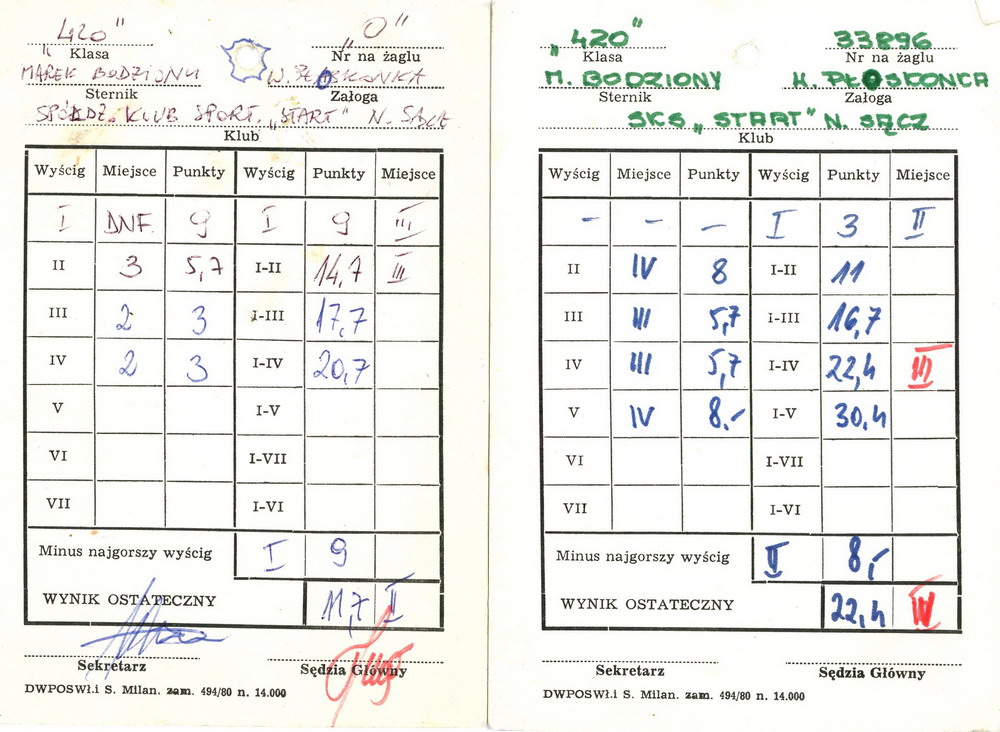 "420" "0"
Klasa Nr na żaglu
MAREK BODZIONY W. PŁOSKONKA
Sternik Załoga
SPÓŁDZ. KLUB SPORT. „START" N. SĄCZ
Klub
Wyścig Miejsce Punkty Wyścig Punkty Miejsce
I DNF. 9 I 9 III
II 3 5,7 I-II 14,7 III
III 2 3 I-III 17,7
IV 2 3 I-IV 20,7
V I-V
VI I-VII
VII I-VI
Minus najgorszy wyścig I 9
WYNIK OSTATECZNY 11,7 II
Sekretarz Sędzia Główny
DWPOSWł.i S. Milan. zam. 494/80 n. 14.000
„420" 33896
Klasa Nr na żaglu
M. BODZIONY K. PŁOSKONKA
Sternik Załoga
SKS „START" N. SĄCZ
Klub
Wyścig Miejsce Punkty Wyścig Punkty Miejsce
– – – I 3 II
II IV 8 I-II 11
III III 5,7 I-III 16,7
IV III 5,7 I-IV 22,4 III
V IV 8,- I-V 30,4
VI I-VII
VII I-VI
Minus najgorszy wyścig II 8,-
WYNIK OSTATECZNY 22,4 IV
Sekretarz Sędzia Główny
DWPOSWł.i S. Milan. zam. 494/80 n. 14.000